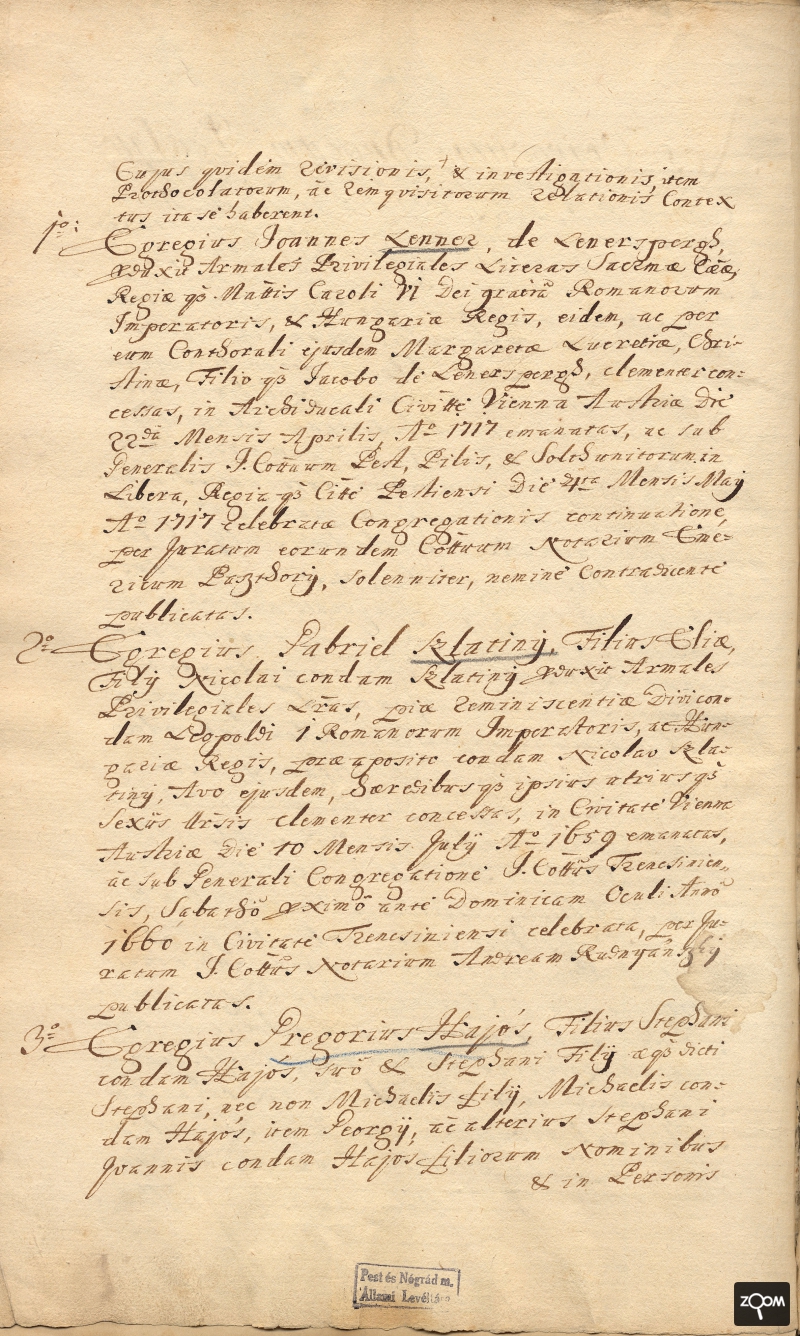 Cujus quidem Revisionis, & investigationis, item
Prothocolatorum, ac Remquisitorum Relationis Contex
tus ita se haberent.
1o: Egregius Joannes Lenner, de Lenerspergh,
produxit Armales Privilegiales Literas Sacrmae Caae,
Regiae qȝ Mattis Caroli VI Dei gratia Romanorum
Imperatoris, & Hungariae Regis, eidem, ac per
eum Conthorali ejusdem Margaretae Lucretiae, Chri-
stinae, Filio qȝ Jacobo de Lenerspergh, clementer con-
cessas, in Archiducali Civitte Vienna Austriae Die
22da Mensis Aprilis, Ao 1717 emanatas, ac sub
Generalis I. Cottuum Pest, Pilis, & Solth unitorum in
Libera, Regia qȝ Citte Pestiensi Die 4ta Mensis May
Ao 1717 celebratae Congregationis continuatione,
per Juratum eorundem Cottuum Notarium Eme-
ricum Paszthory, solenniter, nemine Contradicente
publicatas.
2o Egregius Gabriel Szlatiny, Filius Eliae,
Filÿ Nicolai condam Szlatiny produxit Armales
Privilegiales Lras, piae reminiscentiae Divi con-
dam Leopoldi 1 Romanorum Imperatoris, ac Hun-
gariae Regis, praeaposito condam Nicolao Szla-
tiny, Avo ejusdem, haeredibus qȝ ipsius utrius qȝ
Sexus Ursis clementer concessas, in Civitate Vienna
Austriae Die 10 Mensis Julÿ Ao 1659 emanatas,
ac sub Generali Congregatione I. Cottus Trencsinien-
sis, Sabatho proximo ante Dominicam Oculi Anno
1660 in Civitate Trencsiniensi celebrata, per Ju-
ratum I. Cottus Notarium Andream Rudnyánszky
publicatas.
3o Egregius Gregorius Hajós, Filius Stephani
condam Hajós, suo & Stephani Filÿ aeqȝ dicti
Stephani, nec non Michaelis filÿ, Michaelis con-
dam Hajós, item Georgÿ, ac alterius Stephani
Joannis condam Hajos filiorum Nominibus
& in Personis
Pest és Nógrád m.
Állami Levéltára
ZOOM